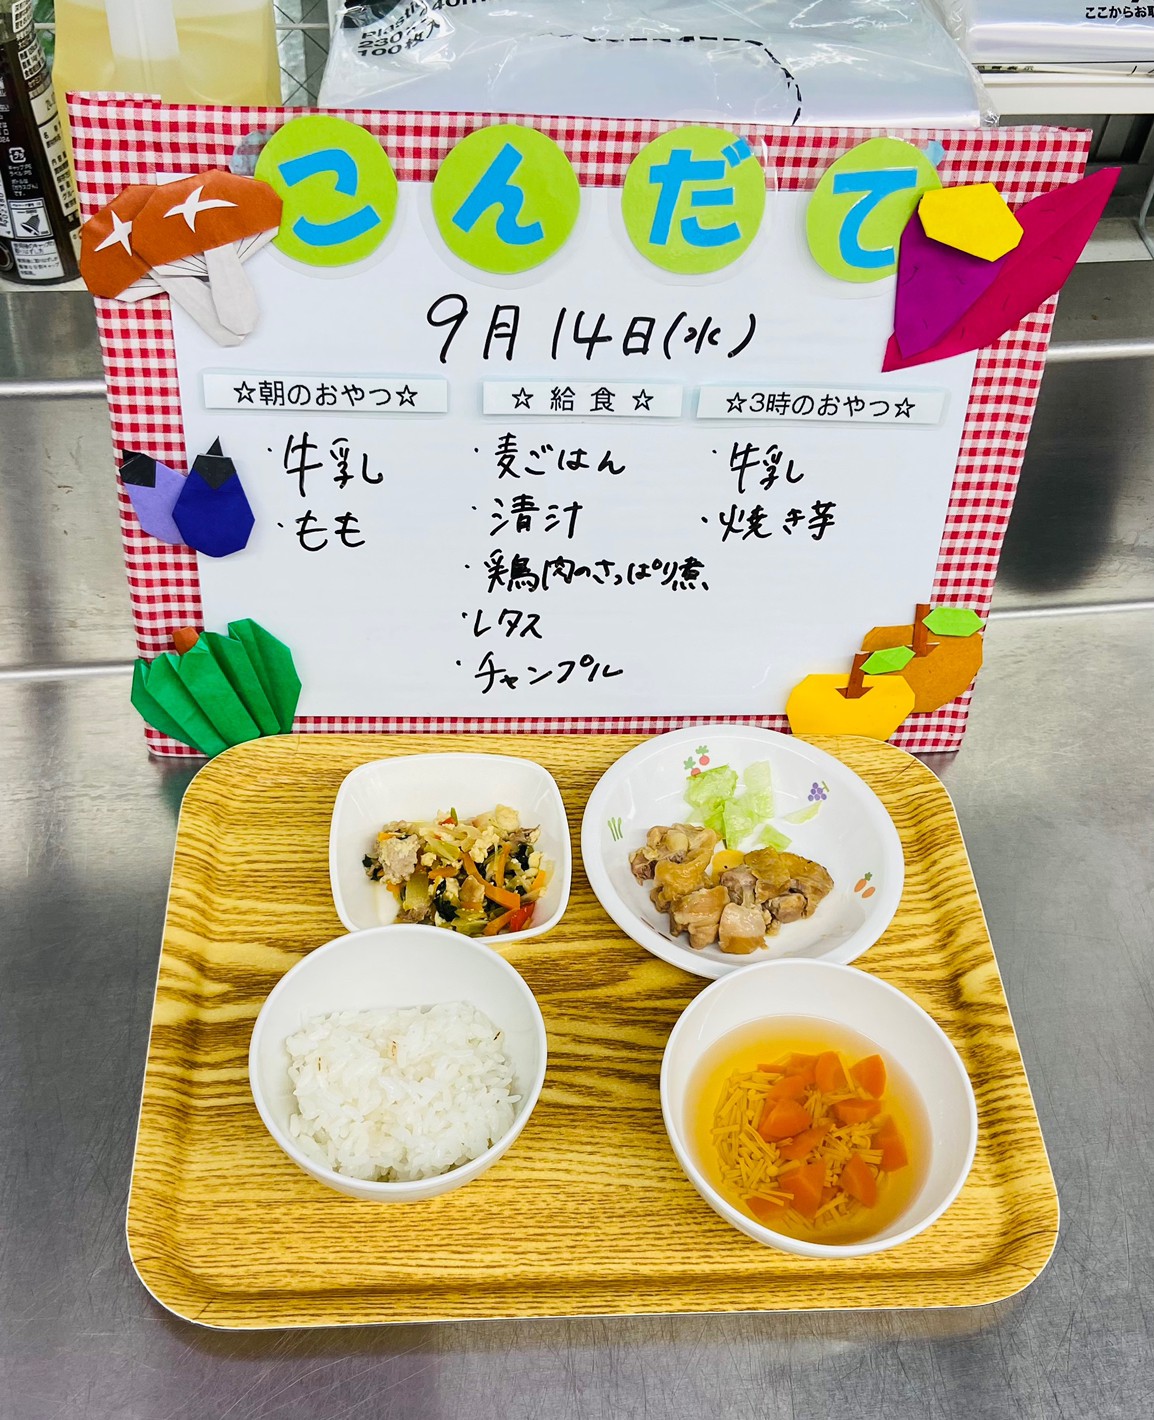 Plastic
230
100枚入
ここからお取
こんだて
9月14日(水)
☆朝のおやつ☆
・牛乳
・もも
☆給食☆
・麦ごはん
・清汁
・鶏肉のさっぱり煮
・レタス
・チャンプル
☆3時のおやつ☆
・牛乳
・焼き芋